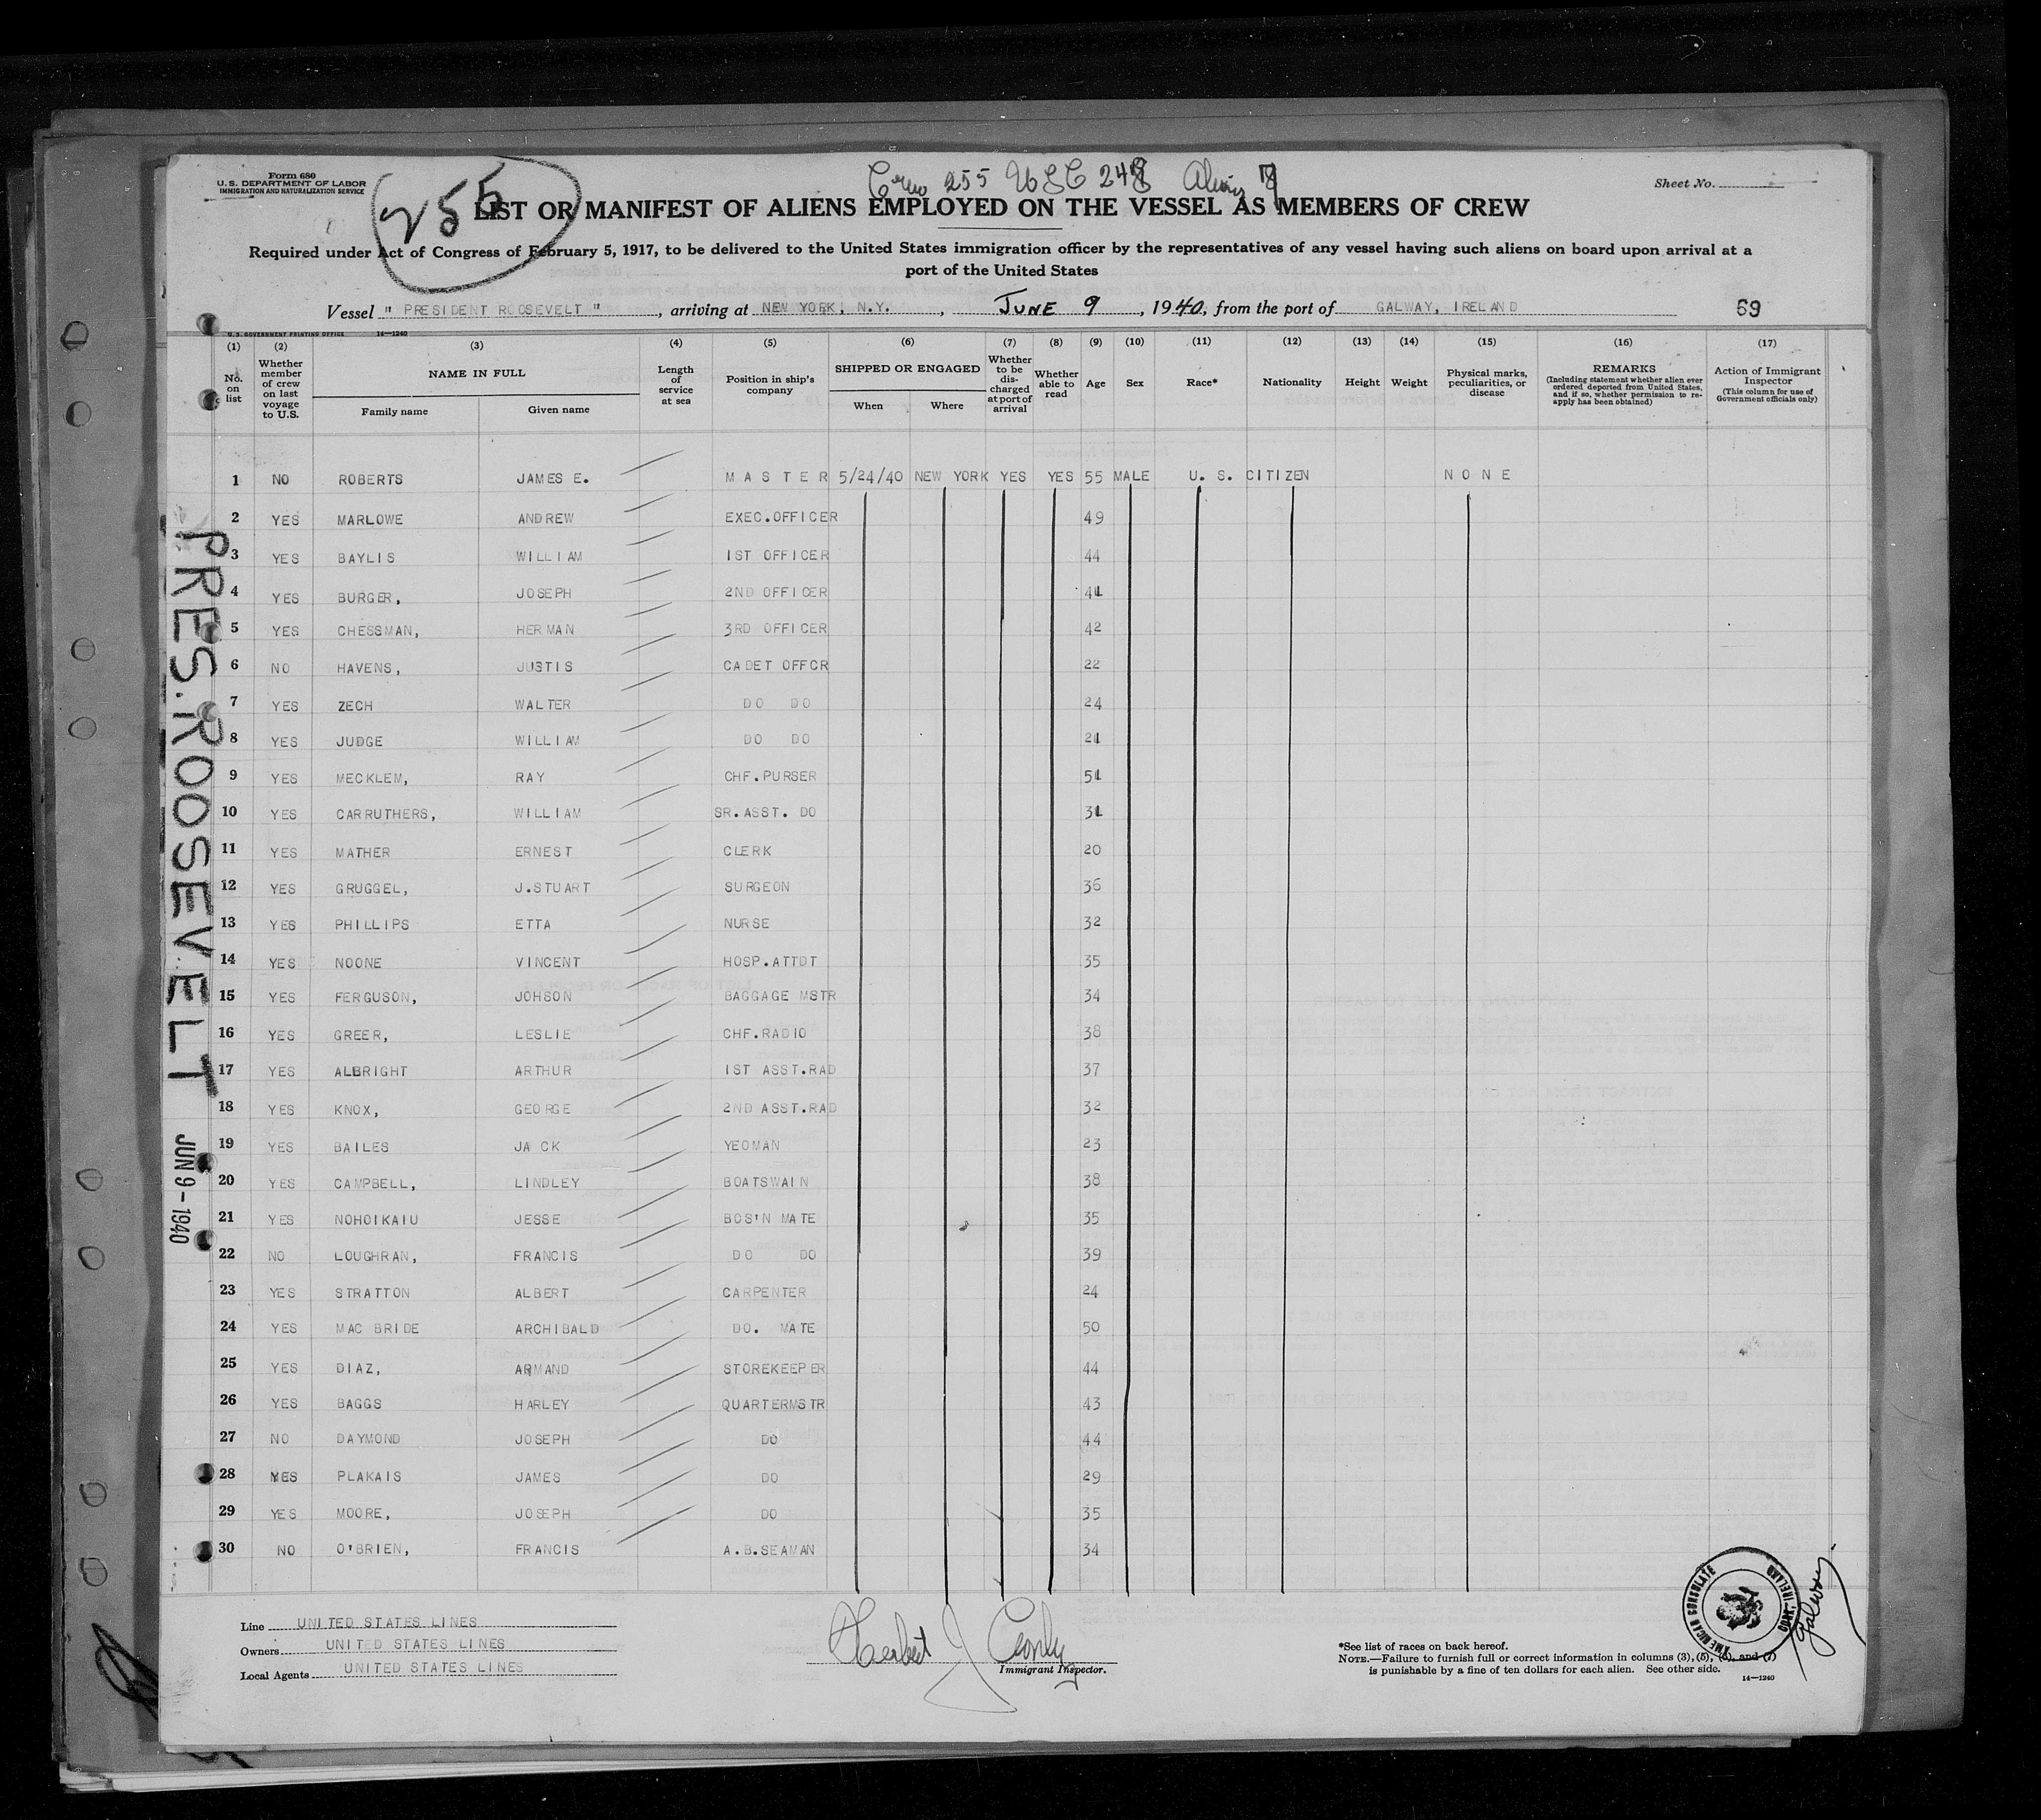 Form 680
U. S. DEPARTMENT OF LABOR
IMMIGRATION AND NATURALIZATION SERVICE
255
Crew 255 USC 248 Aliens
Sheet No.
LIST OR MANIFEST OF ALIENS EMPLOYED ON THE VESSEL AS MEMBERS OF CREW
Required under Act of Congress of February 5, 1917, to be delivered to the United States immigration officer by the representatives of any vessel having such aliens on board upon arrival at a
port of the United States
Vessel " PRESIDENT ROOSEVELT " , arriving at NEW YORK, N.Y. , JUNE 9 , 1940, from the port of GALWAY, IRELAND 69
U. S. GOVERNMENT PRINTING OFFICE 14—1240
(1) (2) (3) (4) (5) (6) (7) (8) (9) (10) (11) (12) (13) (14) (15) (16) (17)
No. on list
Whether member of crew on last voyage to U.S.
NAME IN FULL
Family name
Given name
Length of service at sea
Position in ship's company
SHIPPED OR ENGAGED
When
Where
Whether to be discharged at port of arrival
Whether able to read
Age
Sex
Race*
Nationality
Height
Weight
Physical marks, peculiarities, or disease
REMARKS
(Including statement whether alien ever ordered deported from United States, and if so, whether permission to re-apply has been obtained)
Action of Immigrant Inspector
(This column for use of Government officials only)
1 NO ROBERTS JAMES E. MASTER 5/24/40 NEW YORK YES YES 55 MALE U. S. CITIZEN NONE
2 YES MARLOWE ANDREW EXEC.OFFICER 49
3 YES BAYLIS WILLIAM 1ST OFFICER 44
4 YES BURGER, JOSEPH 2ND OFFICER 41
5 YES CHESSMAN, HERMAN 3RD OFFICER 42
6 NO HAVENS, JUSTIS CADET OFFCR 22
7 YES ZECH WALTER DO DO 24
8 YES JUDGE WILLIAM DO DO 21
9 YES MECKLEM, RAY CHF.PURSER 51
10 YES CARRUTHERS, WILLIAM SR.ASST. DO 31
11 YES MATHER ERNEST CLERK 20
12 YES GRUGGEL, J.STUART SURGEON 36
13 YES PHILLIPS ETTA NURSE 32
14 YES NOONE VINCENT HOSP.ATTDT 35
15 YES FERGUSON, JOHSON BAGGAGE MSTR 34
16 YES GREER, LESLIE CHF.RADIO 38
17 YES ALBRIGHT ARTHUR 1ST ASST.RAD 37
18 YES KNOX, GEORGE 2ND ASST.RAD 32
19 YES BAILES JACK YEOMAN 23
20 YES CAMPBELL, LINDLEY BOATSWAIN 38
21 YES NOHOIKAIU JESSE BOS'N MATE 35
22 NO LOUGHRAN, FRANCIS DO DO 39
23 YES STRATTON ALBERT CARPENTER 24
24 YES MAC BRIDE ARCHIBALD DO. MATE 50
25 YES DIAZ, ARMAND STOREKEEPER 44
26 YES BAGGS HARLEY QUARTERMSTR 43
27 NO DAYMOND JOSEPH DO 44
28 YES PLAKAIS JAMES DO 29
29 YES MOORE, JOSEPH DO 35
30 NO O'BRIEN, FRANCIS A.B.SEAMAN 34
PRES. ROOSEVELT
JUN 9 - 1940
Line UNITED STATES LINES
Owners UNITED STATES LINES
Local Agents UNITED STATES LINES
Herbert J
Immigrant Inspector.
*See list of races on back hereof.
NOTE.—Failure to furnish full or correct information in columns (3), (5), (6), and (7)
is punishable by a fine of ten dollars for each alien. See other side.
14—1240
AMERICAN CONSULATE
CORK, IRELAND
Galway